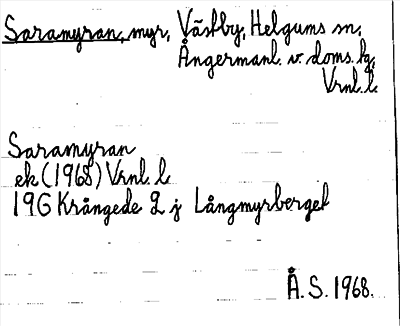 Saramyran, myr, Västby, Helgums sn,
Ångermanl. v. doms. hg,
Vrnl. l.
Saramyran
ek (1968) Vrnl. l.
19G Krångede 2 j Långmyrberget
Å. S. 1968.